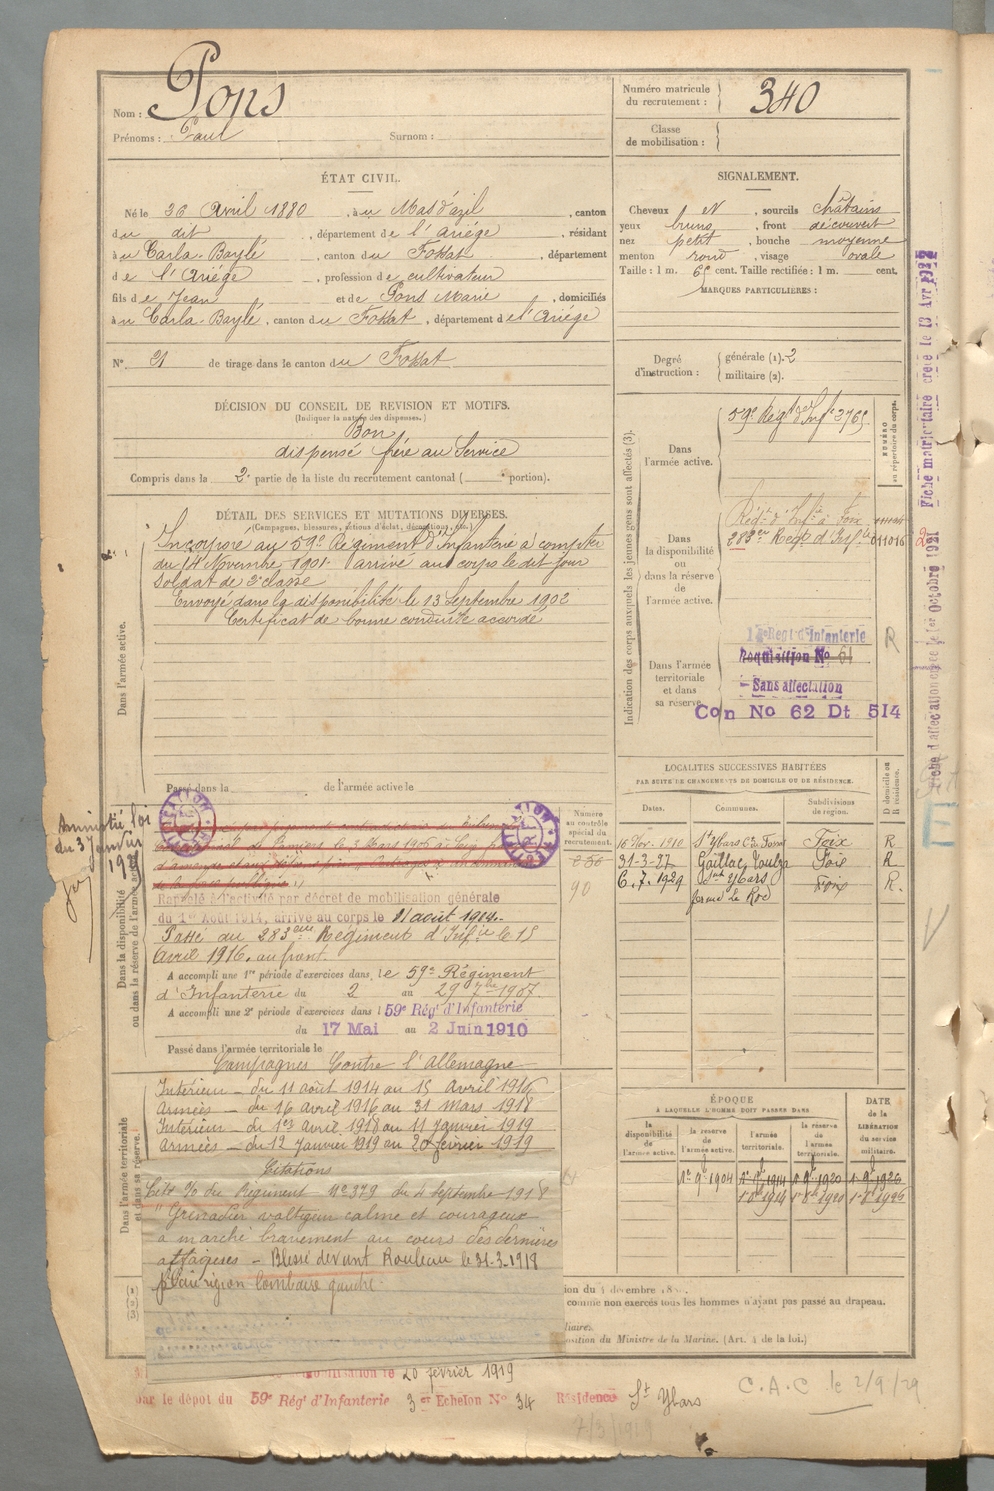 Nom : Pons
Prénoms : Paul Surnom :
Numéro matricule du recrutement : 340
Classe de mobilisation :
ÉTAT CIVIL.
Né le 26 Avril 1880, à u Mas d'azil, canton
du dit, département de l'Ariége, résidant
à u Carla-Baylé, canton du Fossat, département
de l'Ariége, profession de cultivateur
fils de Jean et de Pons Marie, domiciliés
à u Carla-Baylé, canton du Fossat, département de l'Ariége
N° 21 de tirage dans le canton du Fossat
SIGNALEMENT.
Cheveux et, sourcils châtains
yeux bruns, front découvert
nez petit, bouche moyenne
menton rond, visage ovale
Taille : 1 m. 65 cent. Taille rectifiée : 1 m. cent.
MARQUES PARTICULIÈRES :
Degré d'instruction : générale (1). 2
militaire (2).
DÉCISION DU CONSEIL DE REVISION ET MOTIFS.
(Indiquer la nature des dispenses.)
Bon
dispensé frère au Service
Compris dans la 2e partie de la liste du recrutement cantonal ( portion).
DÉTAIL DES SERVICES ET MUTATIONS DIVERSES.
(Campagnes, blessures, actions d'éclat, décorations, etc.)
Dans l'armée active.
Incorporé au 59e Régiment d'Infanterie à compter
du 14 Novembre 1901. arrivé au corps le dit jour
Soldat de 2e classe
Envoyé dans la disponibilité le 13 Septembre 1902
Certificat de bonne conduite accordé
Passé dans la de l'armée active le
Indication des corps auxquels les jeunes gens sont affectés (3).
NUMÉRO au répertoire du corps.
Dans l'armée active.
59e Régt d'Inf. 3765
Dans la disponibilité ou dans la réserve de l'armée active.
Régt d'Infie à Foix
283e Régt d'Infie 011016
Dans l'armée territoriale et dans sa réserve
Régt d'Infanterie
Requisition No 61
Sans affectation
Con No 62 Dt 514
R
Fiche d'affectation créée le 1er Octobre 1921
Fiche matriculaire créée le 13 Avr 1922
Amnistie loi
du 3 Janvier
Dans la disponibilité ou dans la réserve de l'armée active
Rappelé à l'activité par décret de mobilisation générale
du 1er Août 1914, arrivé au corps le 11 août 1914.
Passé au 283ème Régiment d'Infie le 15
Avril 1916. au front.
A accompli une 1re période d'exercices dans le 59e Régiment
d'Infanterie du 2 au 29 7bre 1907.
A accompli une 2e période d'exercices dans l 59e Rég' d'Infanterie
du 17 Mai au 2 Juin 1910
Passé dans l'armée territoriale le
Numéro au contrôle spécial du recrutement.
90
LOCALITÉS SUCCESSIVES HABITÉES
PAR SUITE DE CHANGEMENTS DE DOMICILE OU DE RÉSIDENCE.
Dates. Communes. Subdivisions de région. D domicile ou R résidence.
16 Nov. 1910 St Ybars Foix R
31-3-27 Gaillac Toulza Foix R
6.7.1929 Saint Ybars Foix R.
ferme Le Roc
Dans l'armée territoriale et dans sa réserve.
Campagnes Contre l'Allemagne
Intérieur – du 11 août 1914 au 15 Avril 1916
Armées – du 16 avril 1916 au 31 Mars 1918
Intérieur – du 1er Avril 1918 au 11 Janvier 1919
Armées – du 12 Janvier 1919 au 20 février 1919
Citations
Cité % du Régiment N° 379 du 4 Septembre 1918
"Grenadier voltigeur calme et courageux
a marché bravement au cours des dernières
attaques – Blessé devant Rouleau le 31-3-1918
plaie région lombaire gauche
ÉPOQUE
À LAQUELLE L'HOMME DOIT PASSER DANS
la disponibilité de l'armée active. la réserve de l'armée active. l'armée territoriale. la réserve de l'armée territoriale. DATE de la LIBÉRATION du service militaire.
1er 9e 1904 1er 9e 1914 1er 9e 1920 1er 9e 1926
1er 8e 1914 1er 8e 1920 1er 8e 1926
(1)
(2)
(3)
comme non exercés tous les hommes n'ayant pas passé au drapeau.
du Ministre de la Marine. (Art. 4 de la loi.)
le 20 février 1919
par le dépôt du 59e Rég' d'Infanterie 3e Echelon N° 34 Résidence St Ybars
7/3/1919
C.A.C le 2/9/29